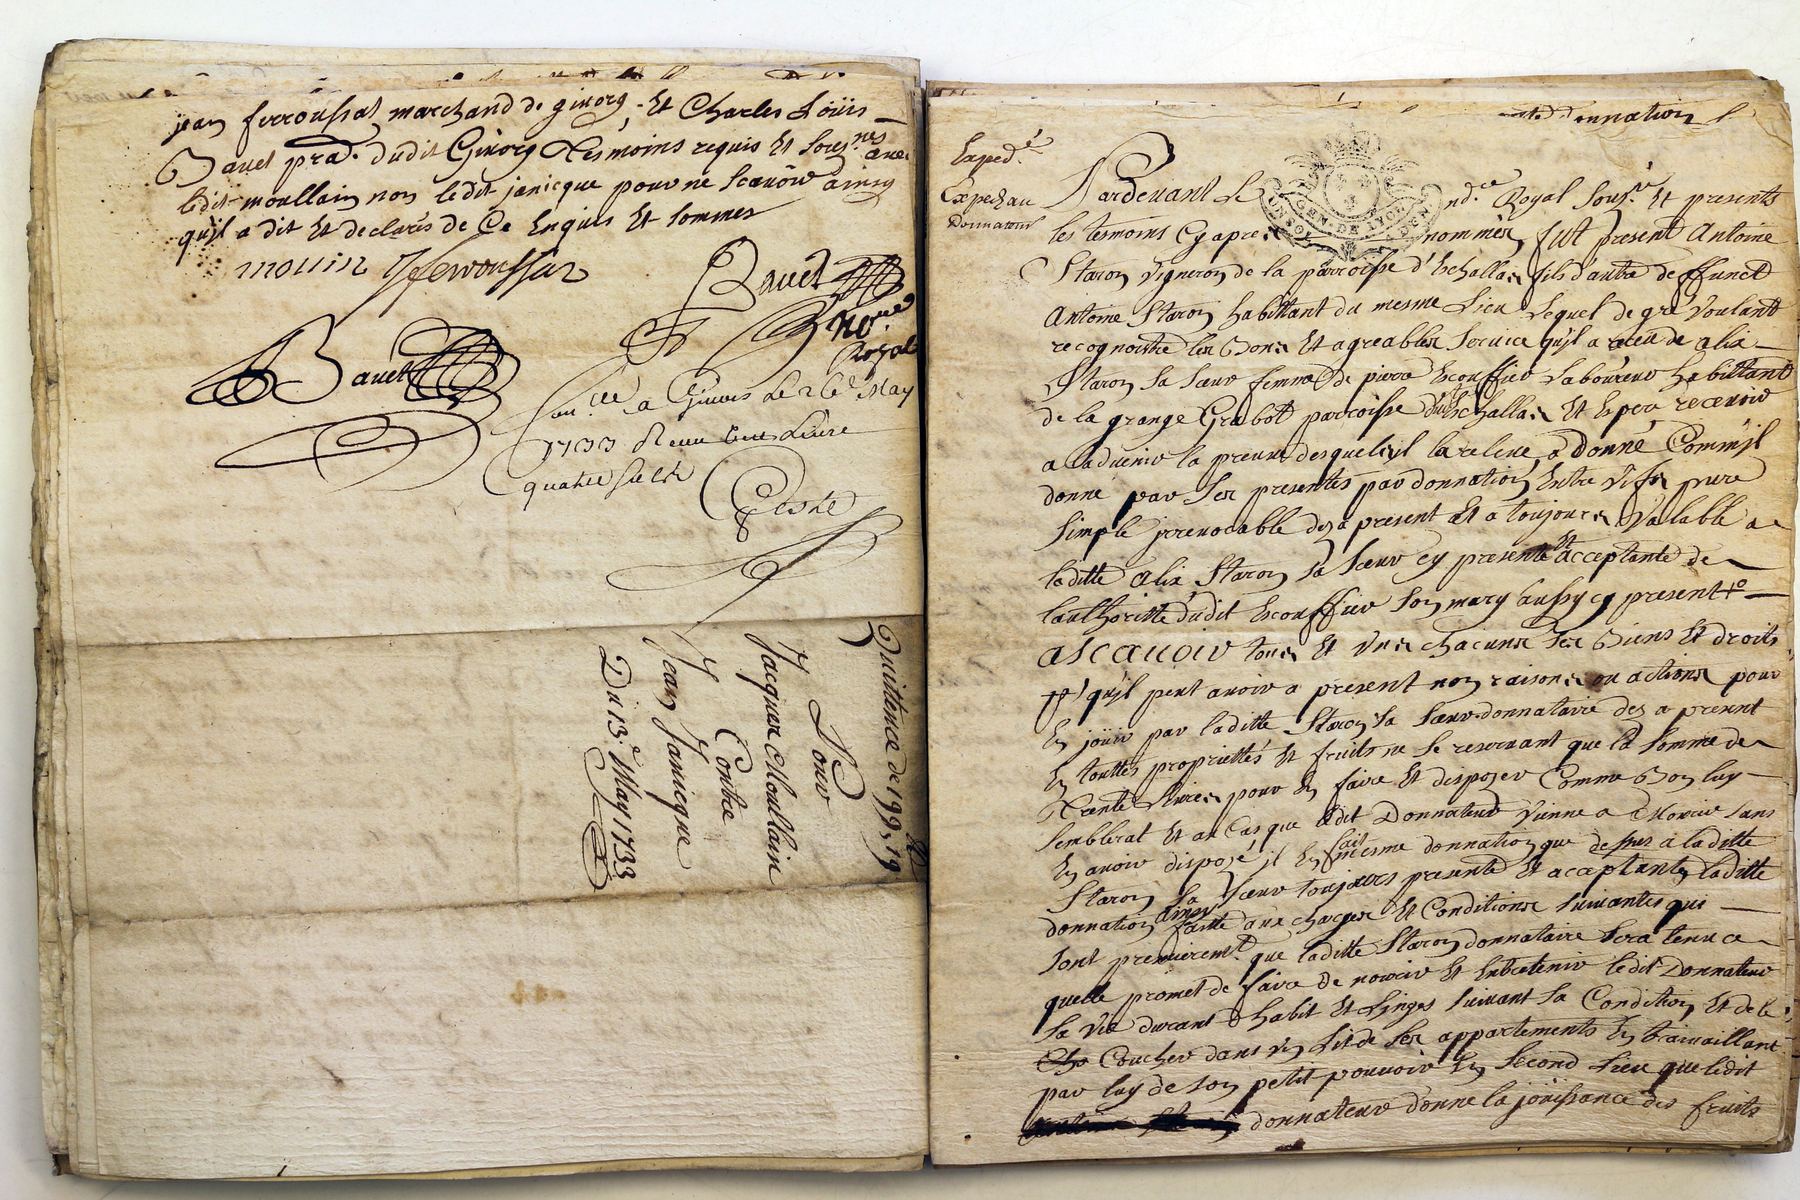 jean ferroussat marchand de givors, Et Charles Loüis
Bavet prad. dudit Givors tesmoins requis Et soussnes avec
ledit moullain non ledit janicque pour ne scavoir ainsy
qu'il a dit Et declarés de Ce Enquis Et sommes
moulin ferroussat
Bavet
Nore
Royal
Bavet
a Givors Le 26e May
1733 Receu Livre
quatre solz
Quittence de 199. 19
Pour
Jacques Moullain
Contre
Jean Janicque
Du 13e May 1733
donnation
Exped.é
Exped au
Donnateur
Pardevant Le nore Royal Sousné Et presents
GEN. DE LYON
les tesmoins Cy apres nommés fut present Antoine
Staron vigneron de la parroisse d'Eschallas fils d'autre deffunct
Antoine Staron habittant du mesme Lieu Lequel de gré voulant
recognoistre les Bons Et agreables Service qu'jl a receu de alix
Staron sa soeur femme de pierre Escouffier Laboureur habittant
de la grange Grabot parroisse d'Eschallas Et Espere recevoir
a l'advenir la preuve desquels jl la releve a donné Comm'jl
donne par Ses presentes par donnation Entre vifs pure
simple jrrevocable des a present Et a toujours valable a
laditte alix Staron sa soeur cy presente Et acceptante de
l'authoritté dudit Escouffier son mary aussy cy present
ascavoir tous Et uns chacuns ses Biens Et droits
qu'jl peut avoir a present noms raisons ou actions pour
En joüir par laditte Staron sa soeur donnataire des a present
En touttes proprietés Et fruits ne se reservant que la somme de
trente Livres pour En faire Et disposer Comme Bon luy
semblerat Et au Cas que ledit Donnateur vienne a Mourir sans
En avoir disposé jl En fait mesme donnation que dessus a laditte
Staron sa soeur toujours presente Et acceptante laditte
donnation ainsy faitte aux charges Et Conditions suivantes qui
sont premierement que laditte Staron donnataire sera tenue
quelle promet de faire de nourir Et Entretenir ledit Donnateur
sa vie durant d'habit Et Linges suivant sa Condition Et de le
Coucher dans un Lit de ses appartements En travaillant
par luy de son petit pouvoir En second Lieu que ledit
donnateur donne la jouissance des fruits